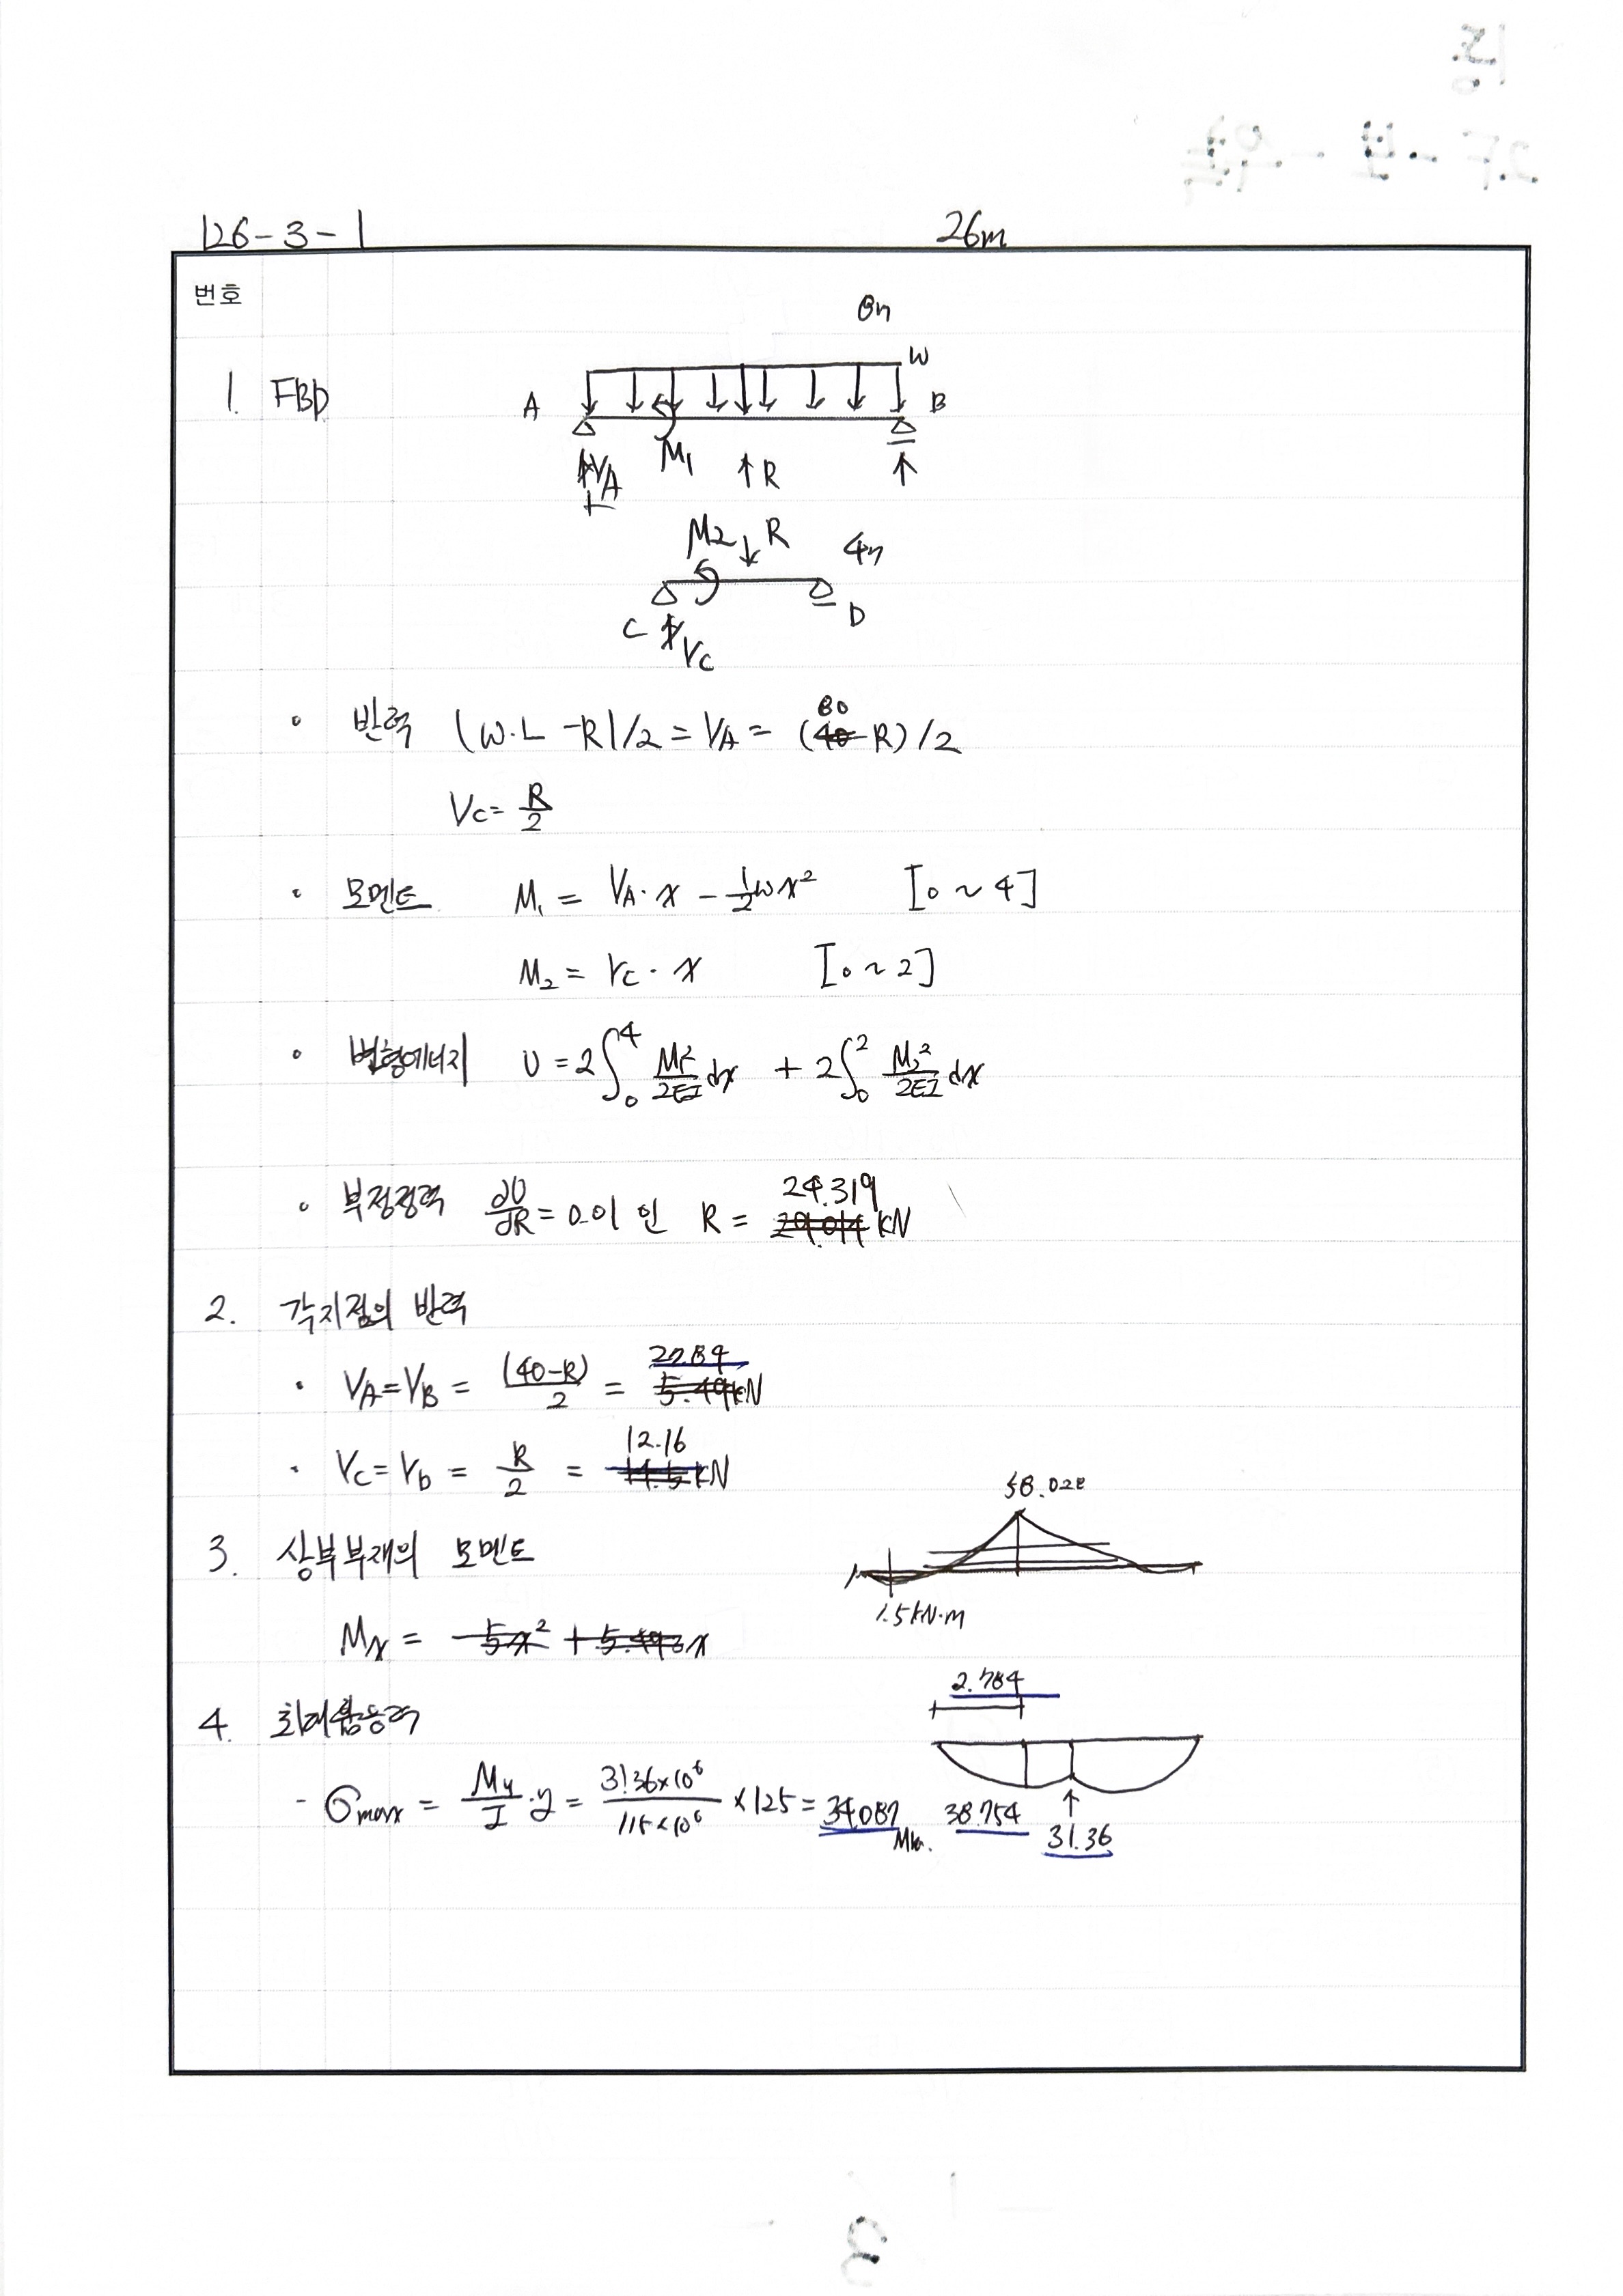 126-3-1 26m
번호
8m
1. FBD
W
A B
VA M1 ↑R ↑
M2 ↓R 4m
C VC D
∘ 반력 (W·L-R)/2 = VA = (80-R)/2
Vc = R/2
· 모멘트 M1 = VA·x - 1/2wx² [0~4]
M2 = Vc·x [0~2]
∘ 변형에너지 U = 2∫₀⁴ M1²/2EI dx + 2∫₀² M2²/2EI dx
∘ 부정정력 ∂U/∂R = 0.01 인 R = 24.319 kN
2. 각지점의 반력
· VA = VB = (40-R)/2 = 27.84 kN
· Vc = VD = R/2 = 12.16 kN
58.028
3. 상부부재의 모멘트
1.5kN·m
Mx = -5x² + 5.493x
2.784
4. 최대휨응력
- σmax = My/I·y = 31.36×10⁶/115×10⁶ ×125 = 34.087 MPa. 38.754
31.36